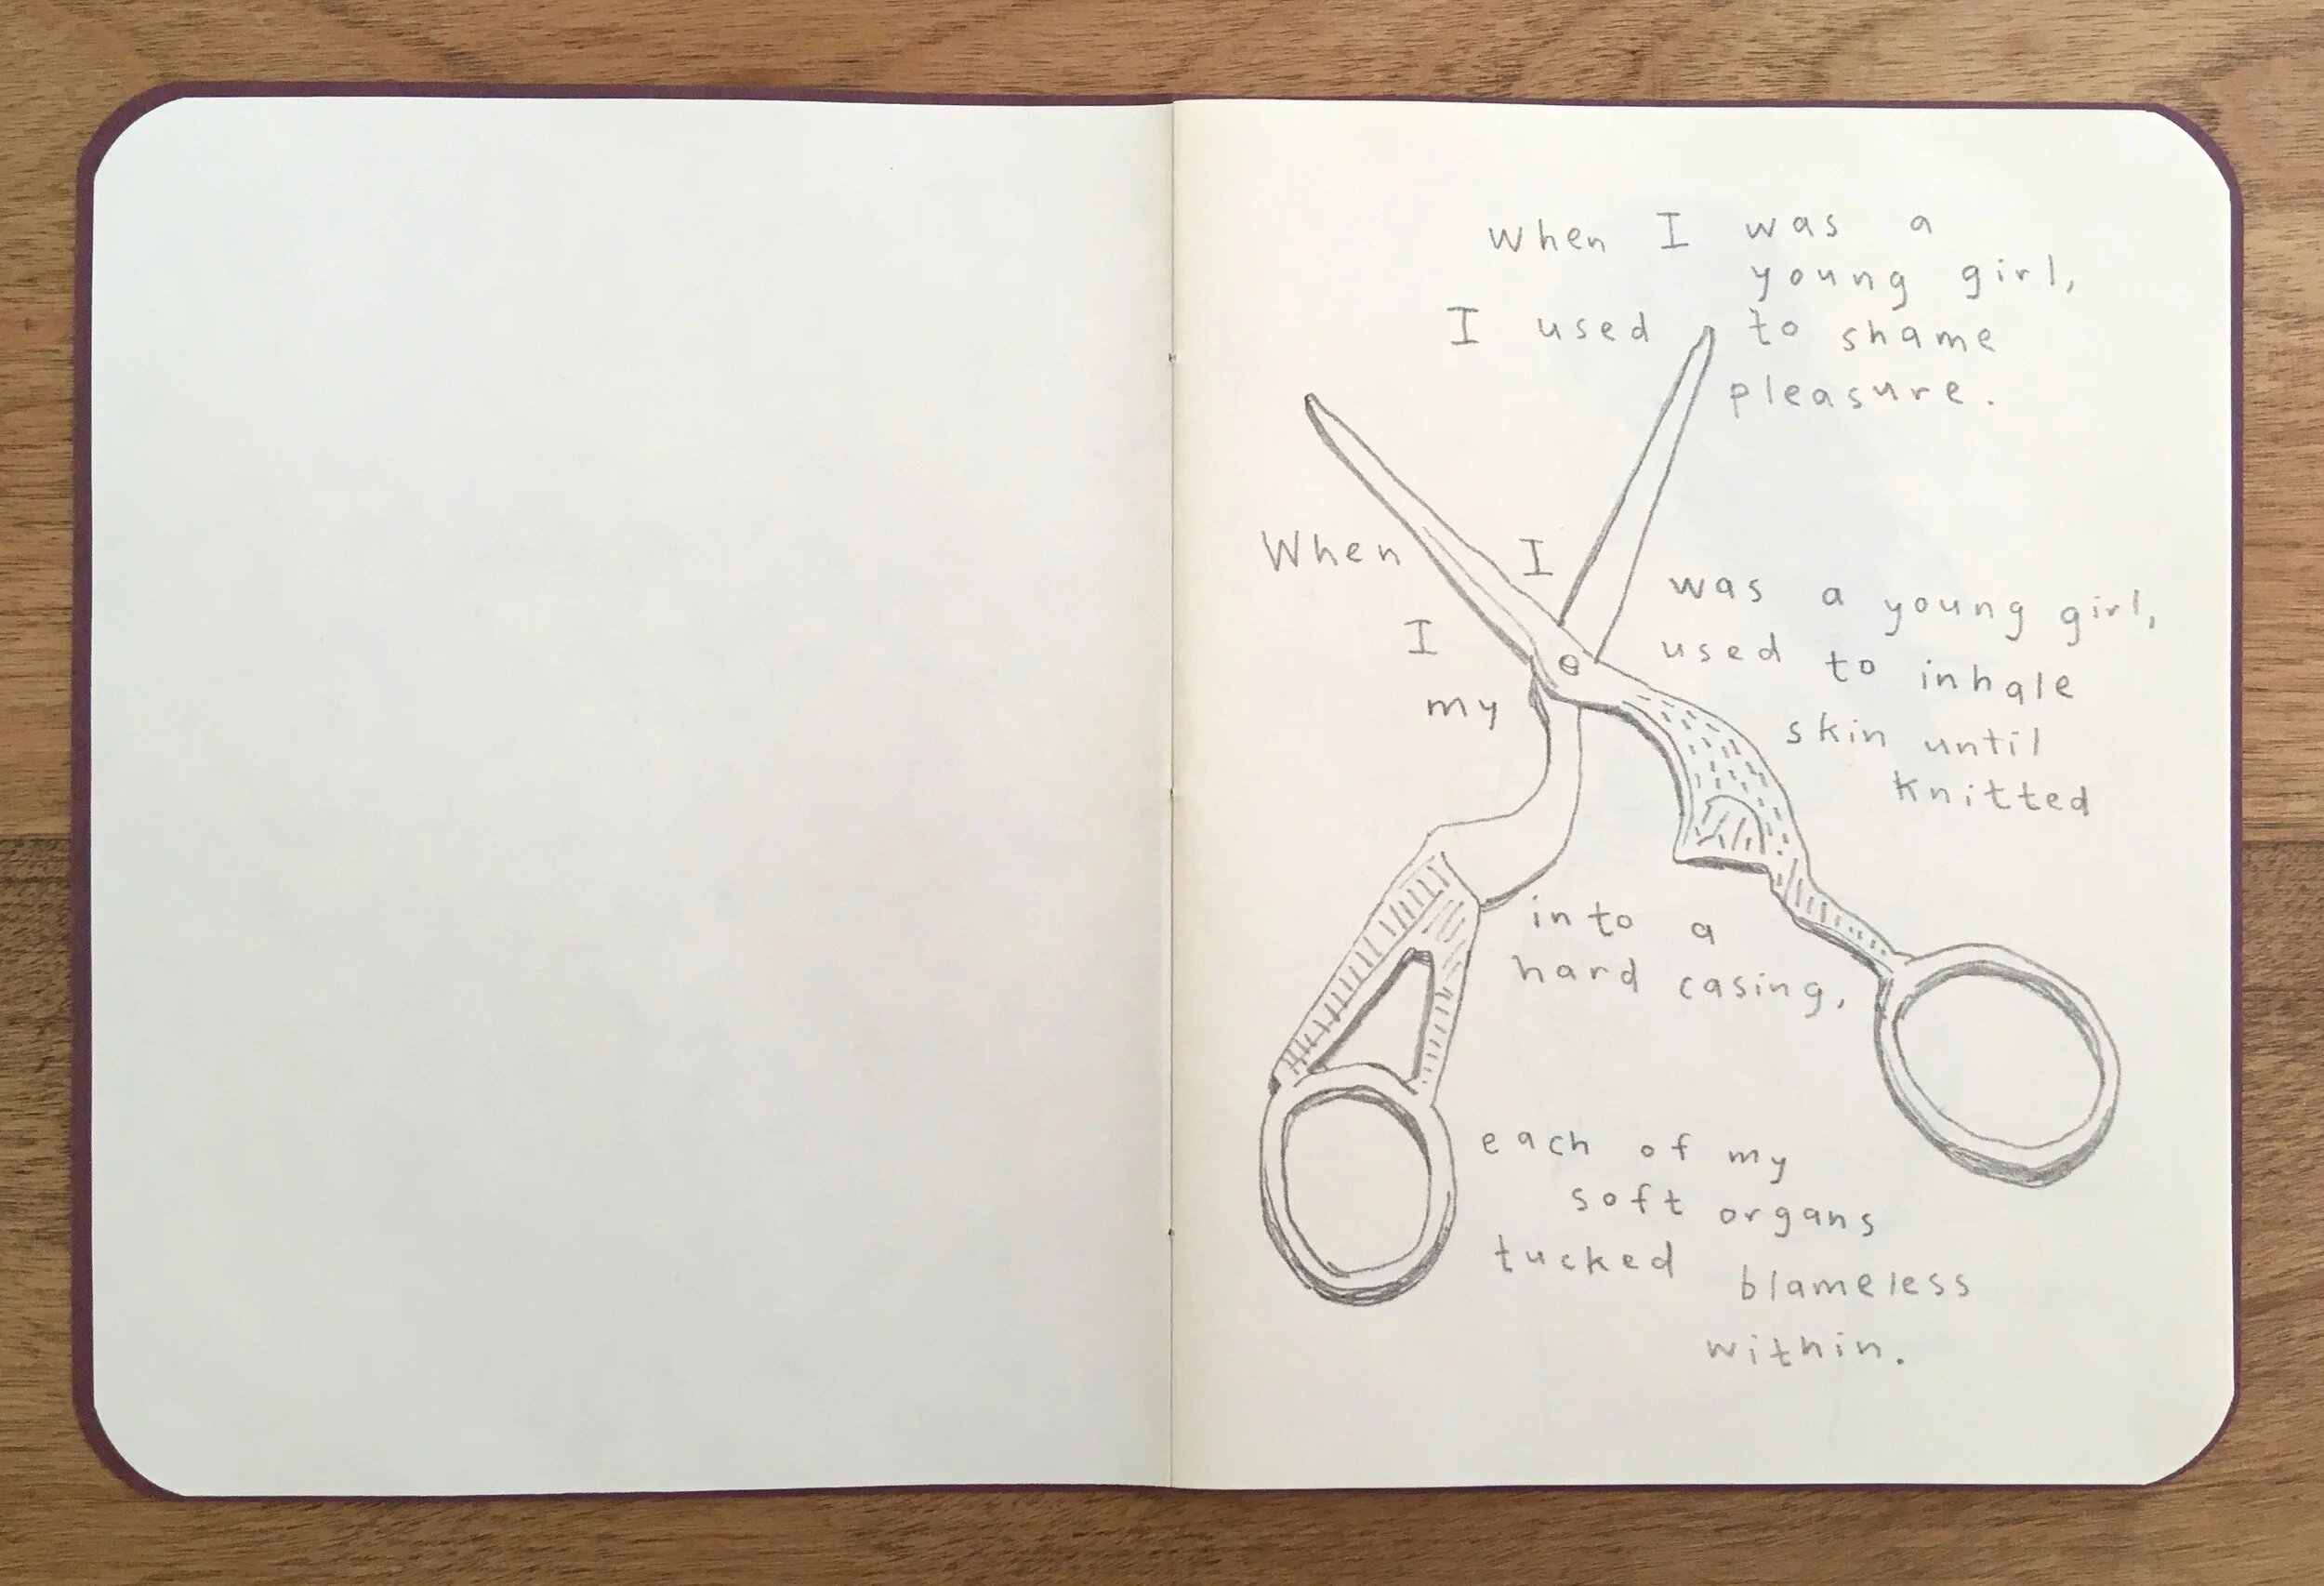 When I was a
young girl,
I used to shame
pleasure.
When I was a young girl,
I used to inhale
my skin until
knitted
into a
hard casing,
each of my
soft organs
tucked blameless
within.